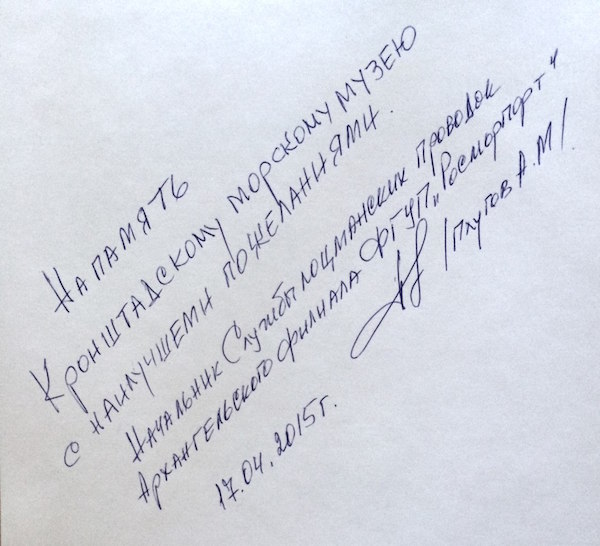 На память
Кронштадскому морскому музею
с наилучшеми пожеланиями.
Начальник Службы лоцманских проводок
Архангельского филиала ФГУП „Росморпорт“
/Плугов А.М/.
17.04.2015г.